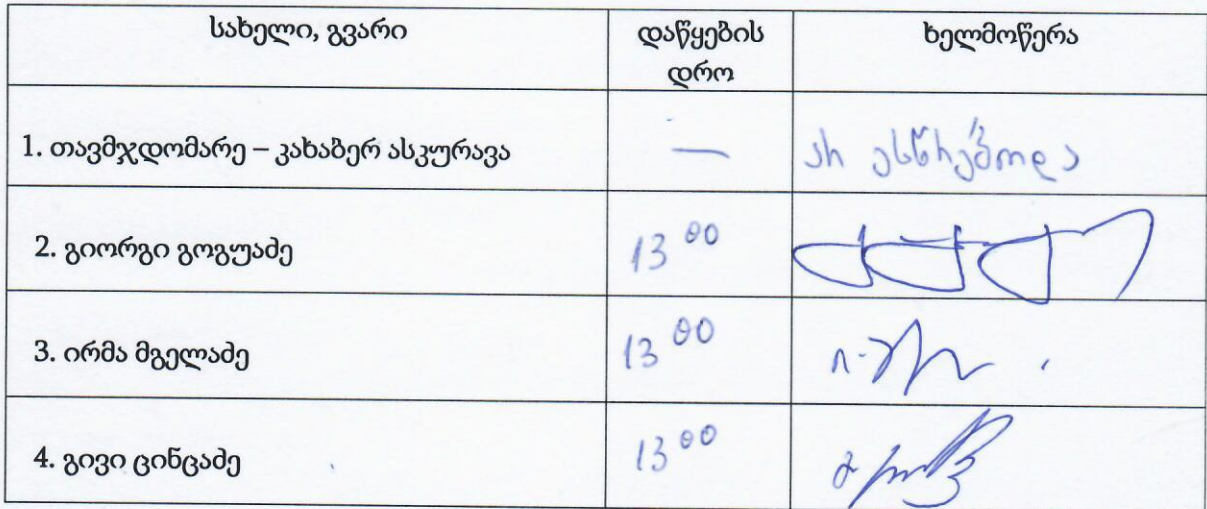 სახელი, გვარი
დაწყების
დრო
ხელმოწერა
1. თავმჯდომარე – კახაბერ ასკურავა
—
არ ესწრებოდა
2. გიორგი გოგუაძე
13 00
3. ირმა მგელაძე
13 00
4. გივი ცინცაძე
13 00